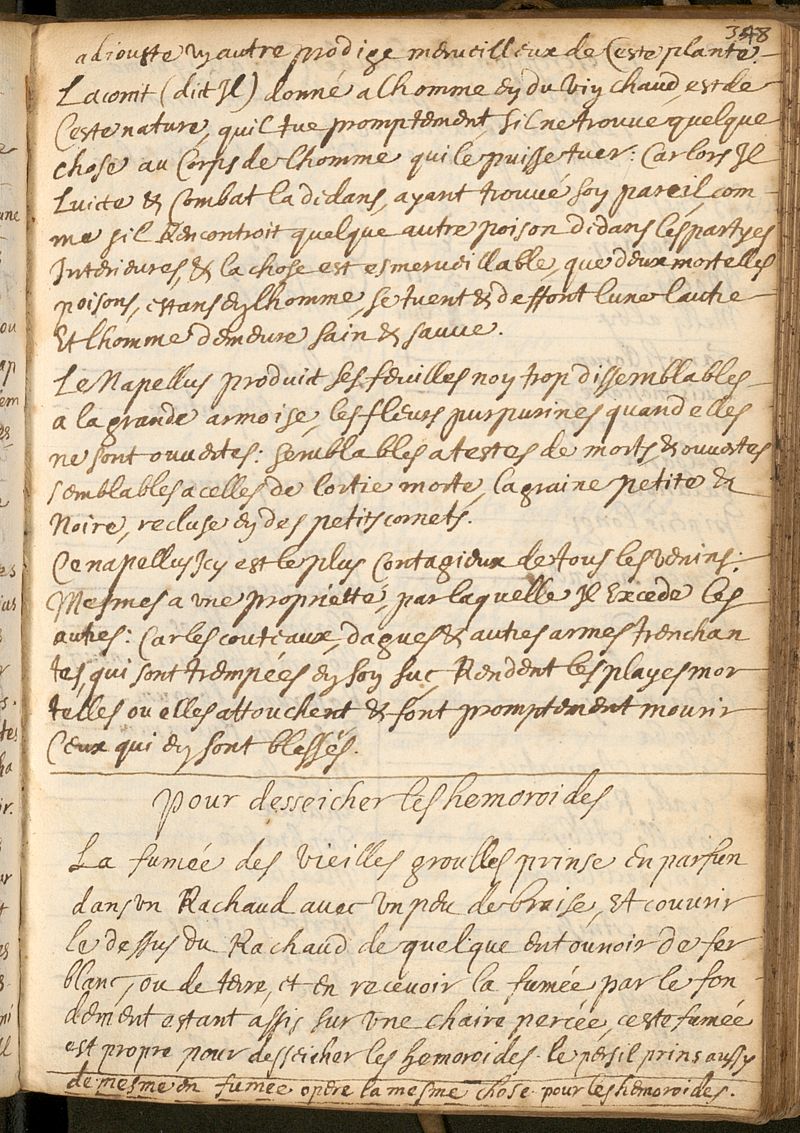 348
adiouste un autre prodige merveilleux de Ceste plante.
Lacomt (dict Jl) donné a lhomme en du vin chaud, est de
Ceste nature, quil tue promptement, sil ne trouve quelque
chose au Corps de lhomme qui le puisse tuer: Car lors Jl
Luicte & Combat la dedans, ayant trouvé son pareil, com-
me sil Rencontroit quelque autre poison dedans les partyes
Interieures, & la chose est esmerveillable, que deux mortelles
poisons, estans en lhomme, se tuent & deffont lune lautre
Et lhomme demeure sain & sauve.
Le Napellus produit ses feuilles non trop dissemblables
a la grande armoise, les fleurs purpurines quand elles
ne sont ouvertes: semblables a testes de morts, & ouvertes
semblables a celles de lortie morte, la graine petite &
Noire, recluse en des petits cornets.
Ce napellus Jcy est le plus Contagieux de tous les venins:
Mesmes a une proprietté, par laquelle Jl Excede les
autres: Car les couteaux, dagues & autres armes trenchan
tes, qui sont trempées en son suc, Rendent les playes mor
telles ou elles attouchent & font promptement mourir
Ceux qui en sont blessés.
Pour desseicher les hemoroides
La fumée des vieilles groulles prinse en parfun
dans un Rachaud avec un peu de braise, Et couvrir
le dessus du Rachaud de quelque entounoir de fer
blanc, ou de terre, et en recevoir la fumée par le fon-
dement estant assis sur une chaire percée, ceste fumée
est propre pour desseicher les hemoroides. le persil prins aussy
de mesme en fumée opere la mesme chose pour les hemoroides.